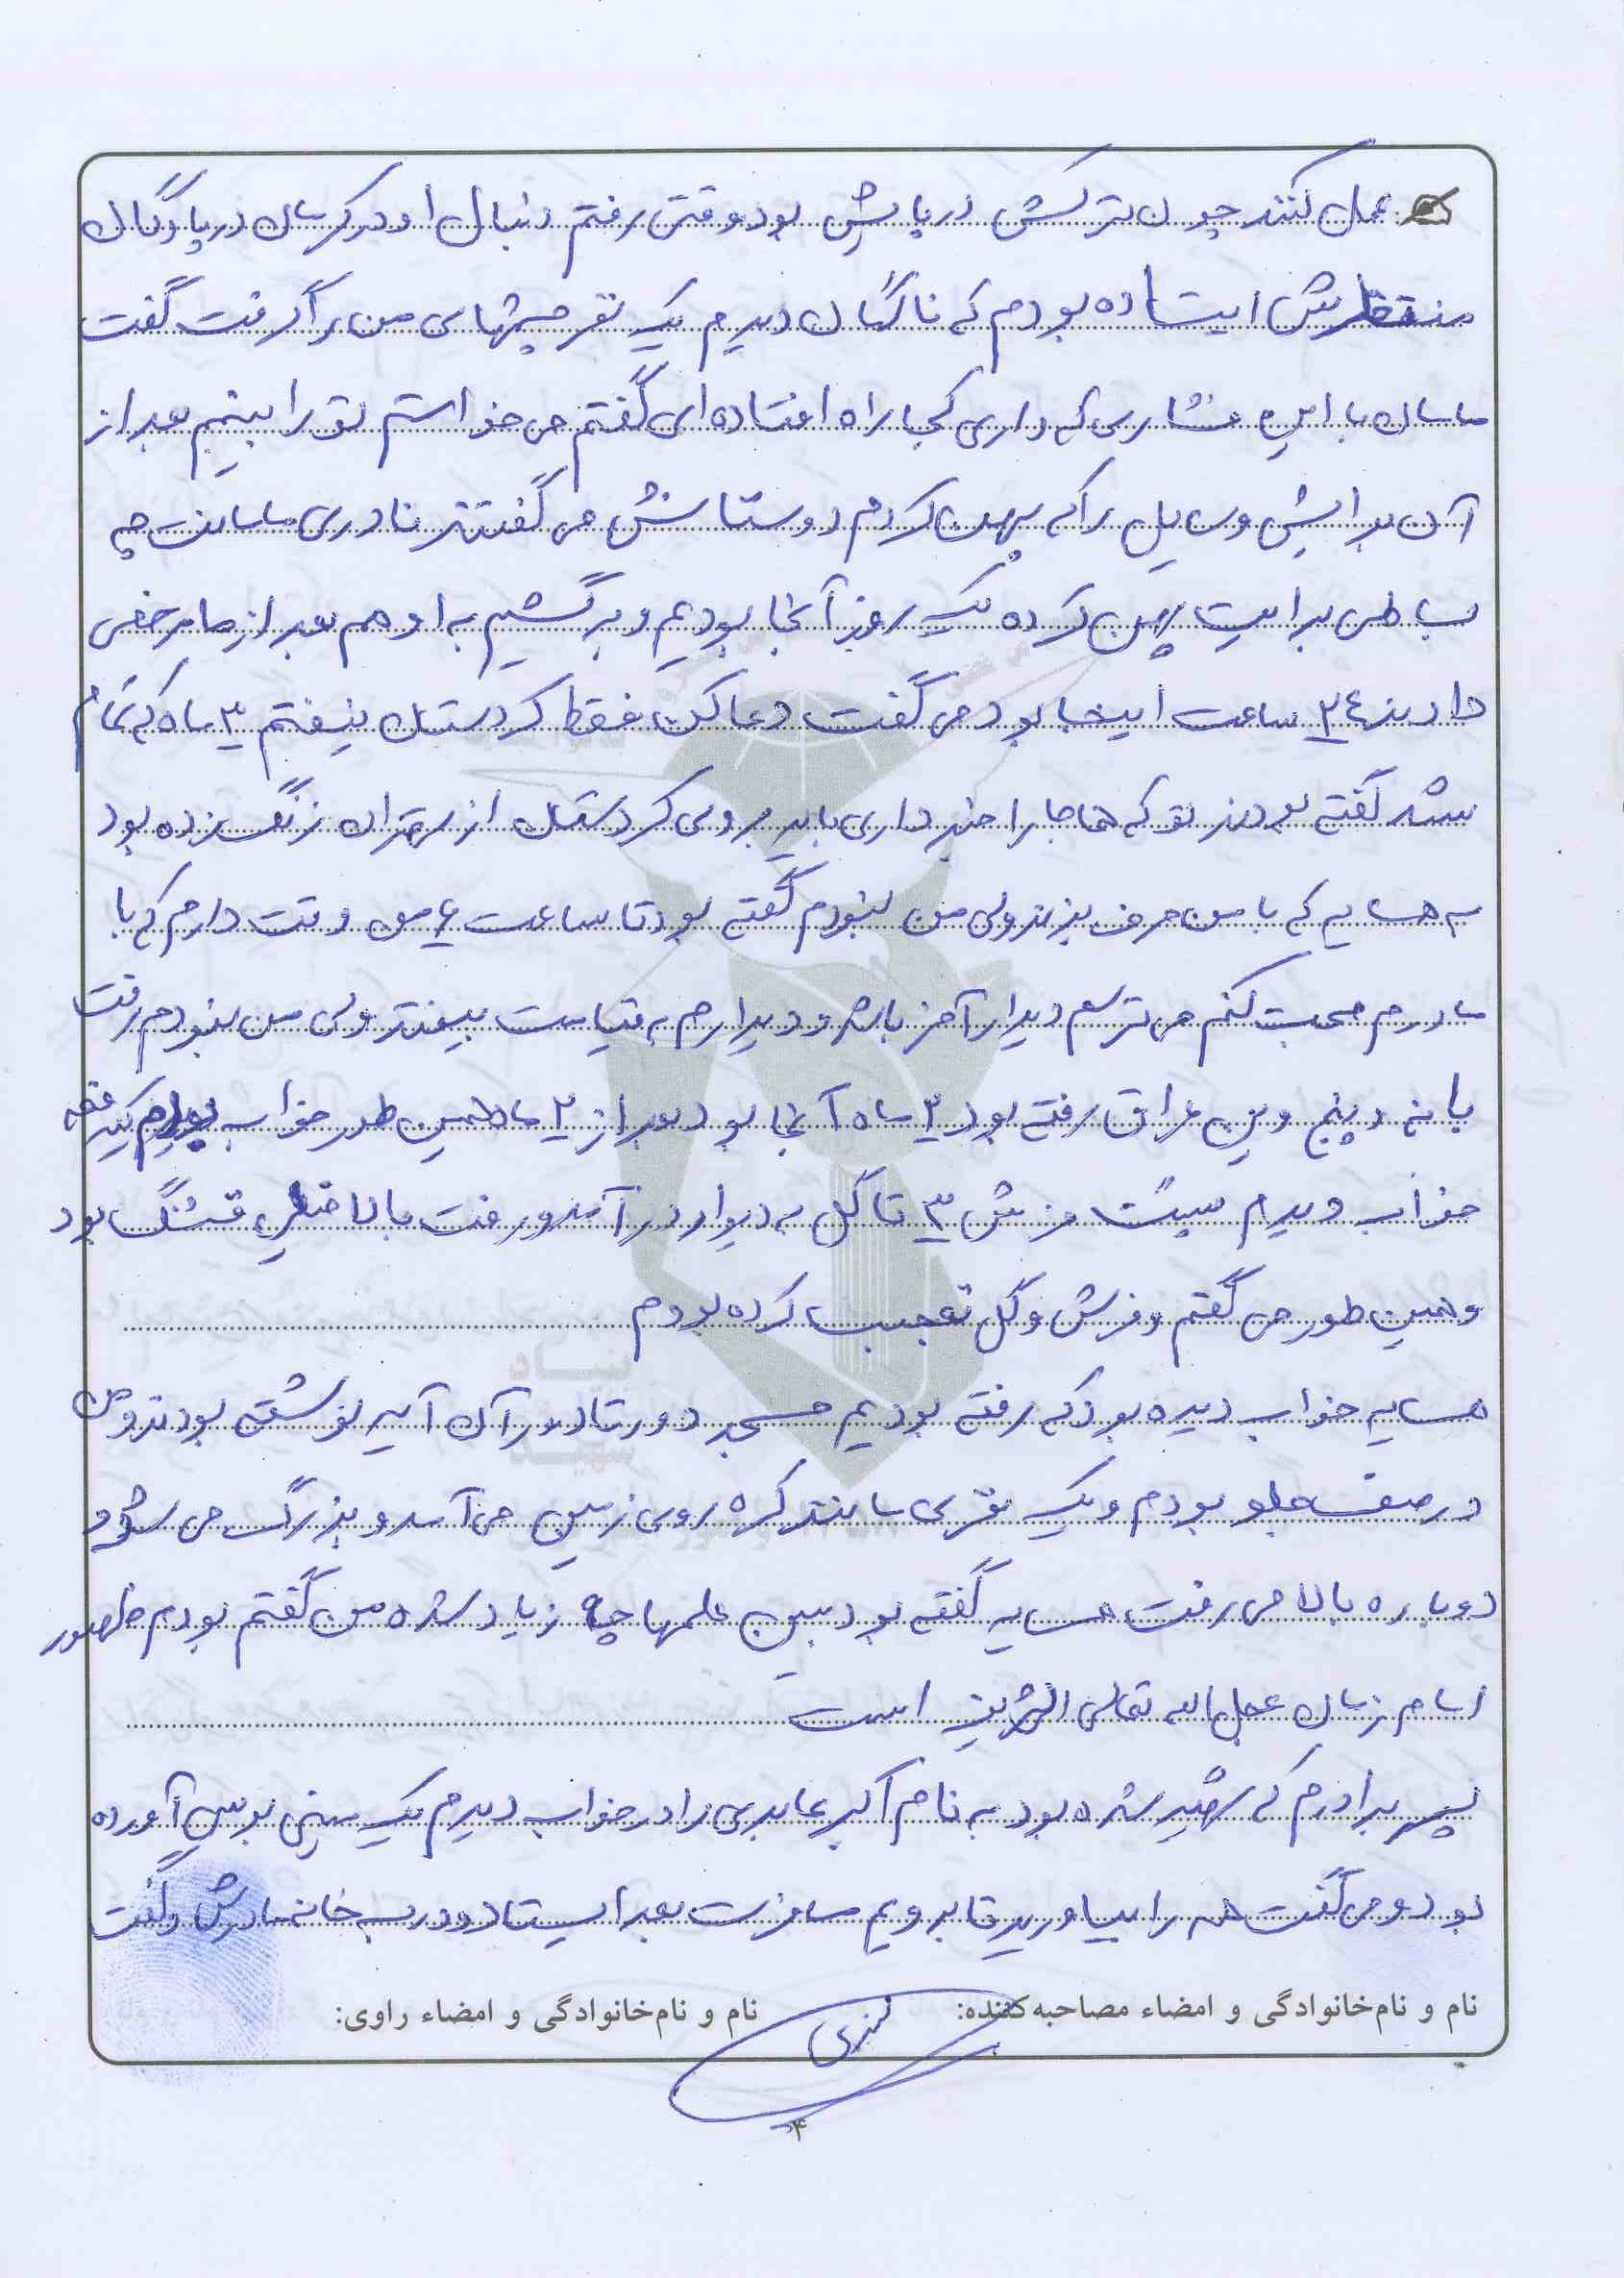 عمل کنند چون ترکش در پایش بود وقتی رفتم دنبال او در کرمان در پادگان
منتظرش ایستاده بودم که ناگهان دیدم یک نفر چشمهای من را گرفت گفت
مامان با این فشاری که داری کجا راه افتاده ای گفتم می خواستم تو را ببینم بعد از
آن برایش وسایل را که پهن کردم دوستانش می گفتند نادری مامانت چه
بساطی برایت پهن کرده یک روز آنجا بودیم و برگشتیم به او هم بعد از ما مرخصی
دادند ٢٤ ساعت اینجا بود می گفت دعا کن فقط کردستان نیفتم ٣ ماه که تمام
شد گفته بودند تو که همه جا را خبر داری باید بروی کردستان از تهران زنگ زده بود
به همسایه که با من حرف بزند ولی من نبودم گفته بود تا ساعت ۶ من وقت دارم که با
مادرم صحبت کنم می ترسم دیدار آخر باشد و دیدارم به قیامت بیفتد ولی من نبودم رفت
بانه و پنج وین عراق رفته بود ٢ ماه آنجا بود بعد از ٢ ماه همین طور خواب بودم یک دفعه
خواب دیدم سبت فرش ٣ تا گل به دیوار در آمد و رفت بالا خیلی قشنگ بود
و همین طور می گفتم فرش و گل تعجب کرده بودم
همسایه خواب دیده بود که رفته بودیم مسجد دور تا دور آن آیه نوشته بودند و من
در صف جلو بودم و یک نقری مانند کره روی زمین می آمد و بزرگ می شود و
دوباره بالا می رفت همسایه گفته بود ببین علمها چه زیاد شده من گفتم بودم ظهور
امام زمان عجل الله تعالی الشریف است
پسر برادرم که شهید شده بود به نام اکبر عابدی را در خواب دیدم یک مینی بوسی آورده
بود و می گفت همه را بیاورید تا برویم مسافرت بعد ایستاد و درب خانه مادرش و گفت
نام و نام‌خانوادگی و امضاء مصاحبه‌کننده: نام و نام‌خانوادگی و امضاء راوی:
۴